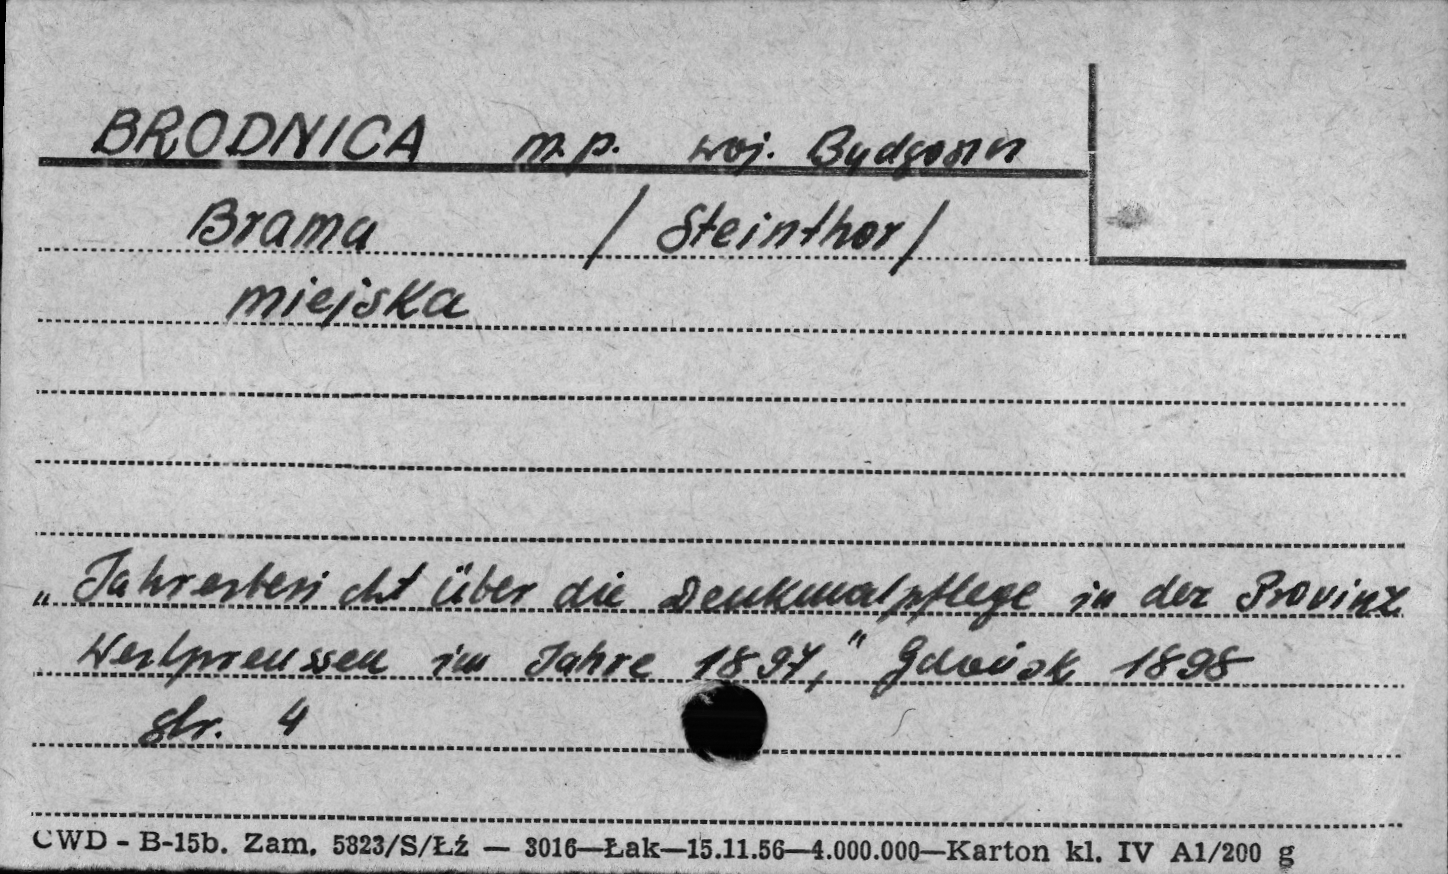 BRODNICA m.p. woj. Bydgoszcz
Brama /Steinthor/
miejska
„Jahresbericht über die Denkmalpflege in der Provinz
Westpreussen im Jahre 1897," Gdańsk 1898
str. 4
CWD - B-15b. Zam. 5823/S/Łź — 3016—Łak—15.11.56—4.000.000—Karton kl. IV A1/200 g